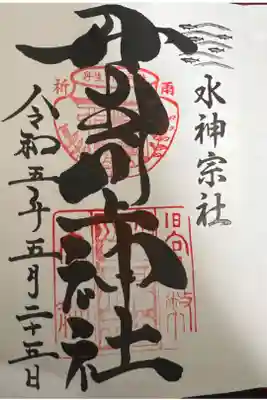 水神宗社
丹生川上神社
令和五年五月二十五日
雨
祈
丹生